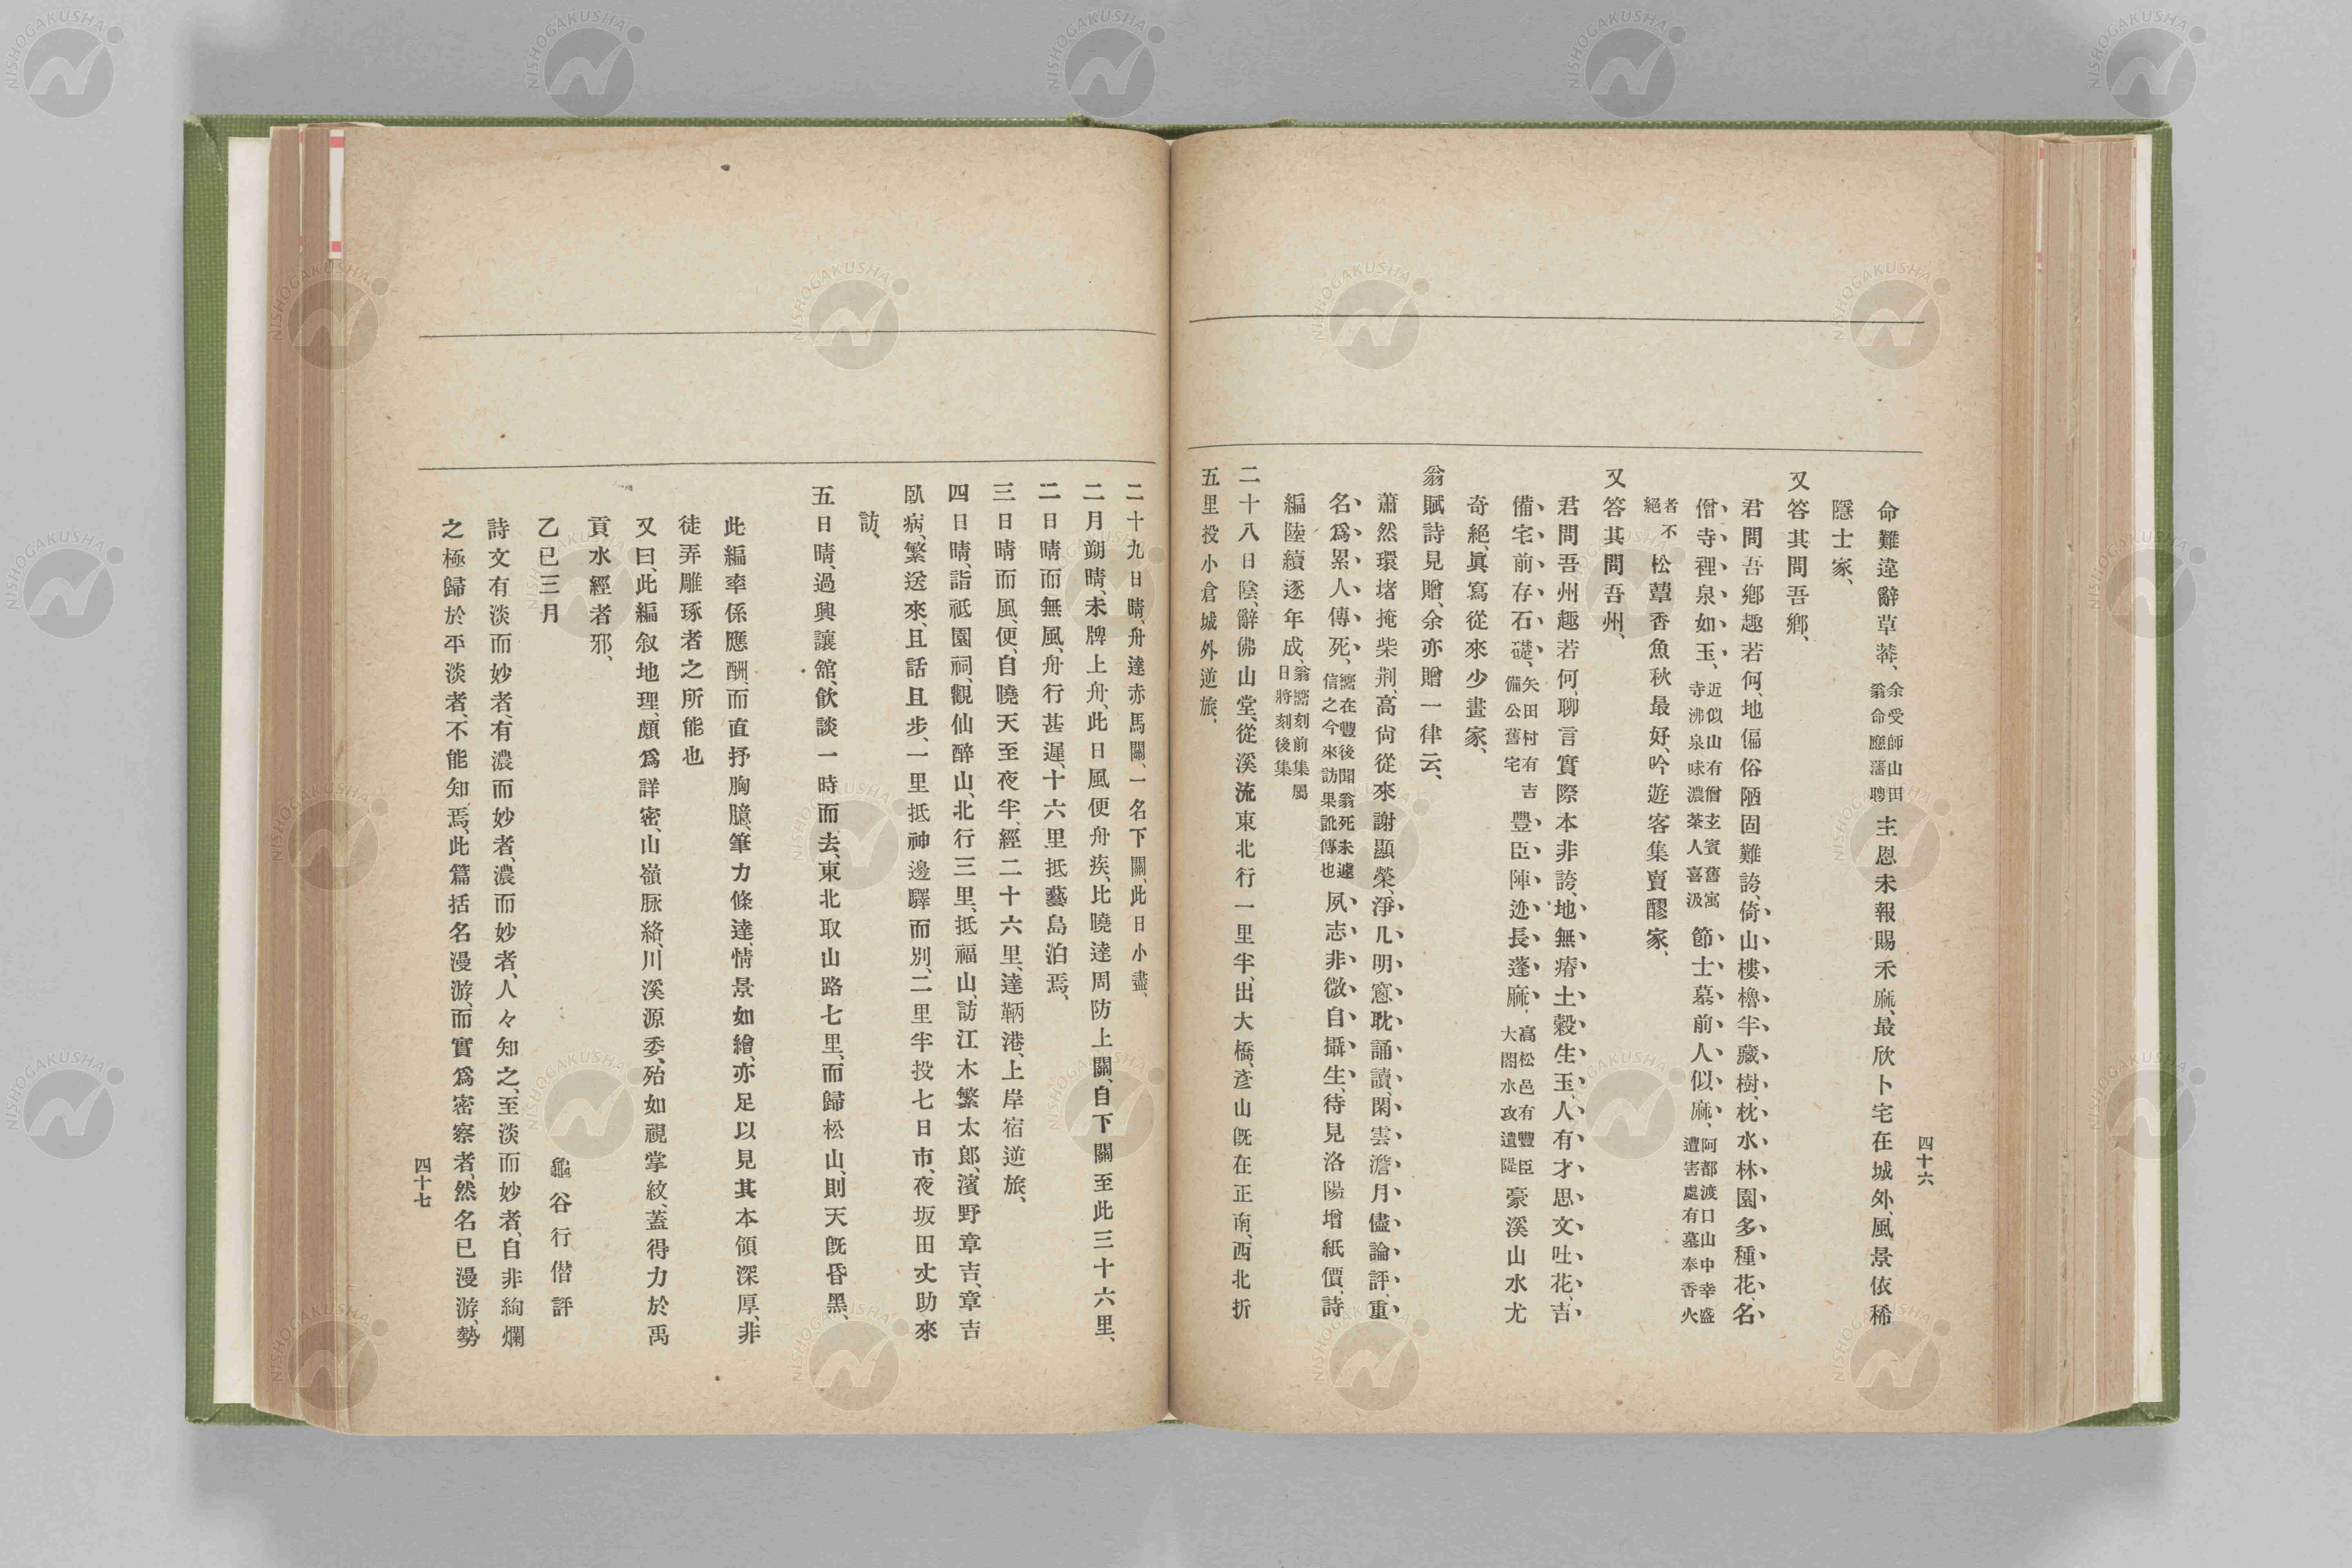 四十六
命難違辭草萊、余受師山田翁命應藩聘主恩未報賜禾麻、最欣卜宅在城外、風景依稀
隱士家、
又答其問吾鄕、
君問吾鄕趣若何、地偏俗陋固難誇、倚山樓櫓半藏樹、枕水林園多種花、名
僧寺裡泉如玉、近似山有僧玄賓舊寓寺沸泉味濃茶人喜汲節士墓前人似麻、阿部渡口山中幸盛遭害處有墓奉香火
者不絕松蕈香魚秋最好、吟遊客集賣醪家、
又答其問吾州、
君問吾州趣若何、聊言實際本非誇、地無瘠土穀生玉、人有才思文吐花、吉
備宅前存石礎、矢田村有吉備公舊宅豐臣陣迹長蓬麻、高松邑有豐臣大閤水攻遺隄豪溪山水尤
奇絕、眞寫從來少畫家、
翁賦詩見贈、余亦贈一律云、
蕭然環堵掩柴荆、高尙從來謝顯榮、淨几明窻耽誦讀、閑雲澹月儘論評、重
名爲累人傳死、嚮在豐後聞翁死未遽信之今來訪果訛傳也夙志非微自攝生、待見洛陽增紙價、詩
編陸續逐年成、翁嚮刻前集屬日將刻後集
二十八日陰、辭佛山堂、從溪流東北行一里半、出大橋、彥山旣在正南、西北折
五里投小倉城外逆旅、
二十九日晴、舟達赤馬關、一名下關、此日小盡、
二月朔晴、未牌上舟、此日風便舟疾、比曉達周防上關、自下關至此三十六里、
二日晴而無風、舟行甚遲、十六里抵藝島泊焉、
三日晴而風便、自曉天至夜半、經二十六里、達鞆港、上岸宿逆旅、
四日晴、詣祇園祠、觀仙醉山、北行三里、抵福山、訪江木繁太郞、濱野章吉、章吉
臥病、繁送來、且話且步、一里抵神邊驛而別、二里半投七日市、夜坂田丈助來
訪、
五日晴、過興讓舘、飮談一時而去、東北取山路七里、而歸松山、則天旣昏黑、
此編率係應酬、而直抒胸臆、筆力條達、情景如繪、亦足以見其本領深厚、非
徒弄雕琢者之所能也
又曰、此編叙地理、頗爲詳密、山嶺脉絡、川溪源委、殆如視掌紋、蓋得力於禹
貢水經者邪、
乙巳三月　龜谷行偕評
詩文有淡而妙者、有濃而妙者、濃而妙者、人々知之、至淡而妙者、自非絢爛
之極歸於平淡者、不能知焉、此篇括名漫游、而實爲密察者、然名已漫游、勢
四十七